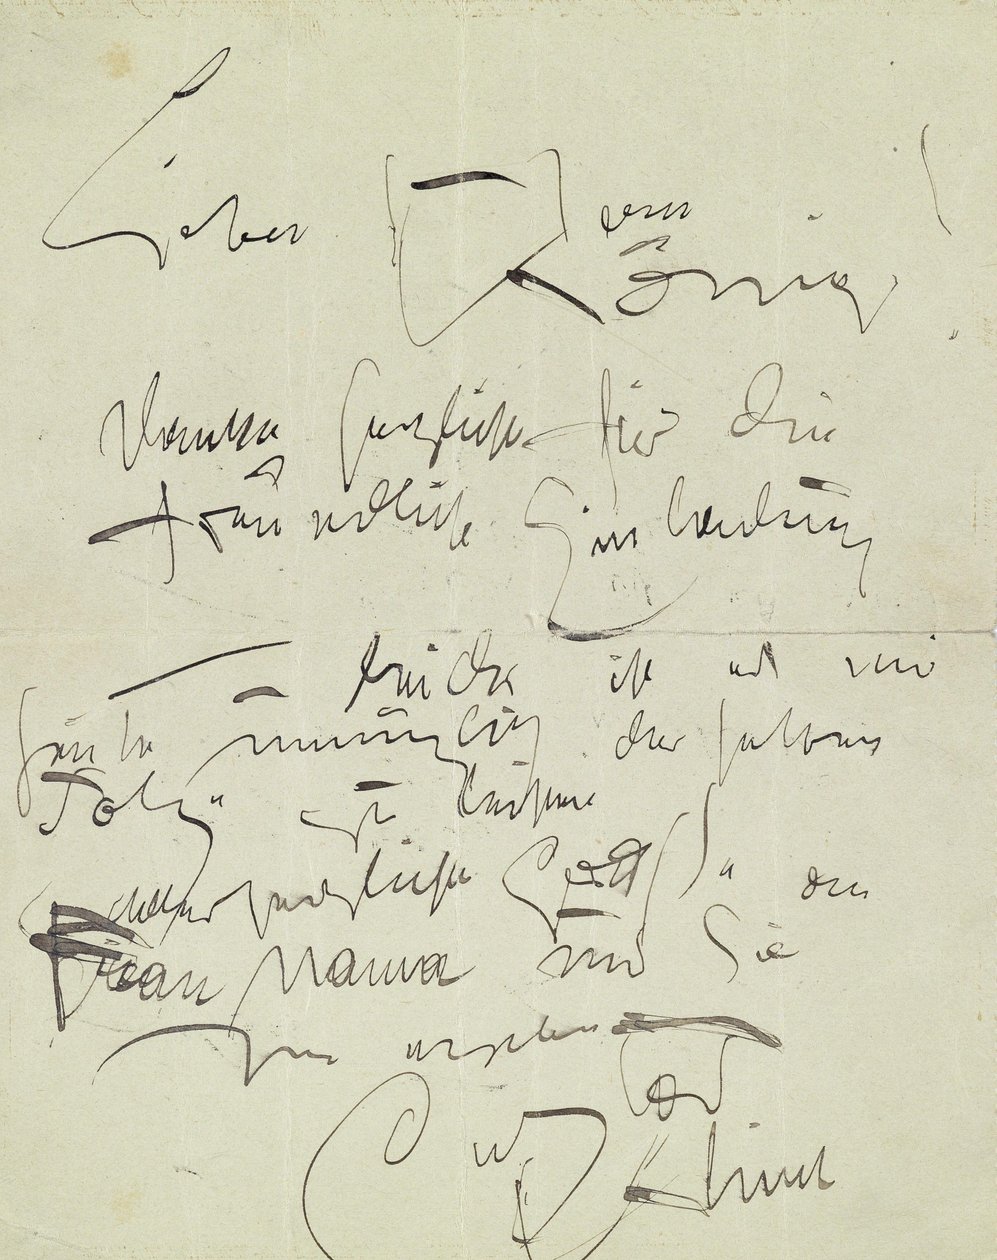 Lieber Herr
König!
Danke herzlichst für die
freundliche Einladung
leider ist es mir
heute unmöglich derselben
Folge zu leisten
herzliche Grüße an
Frau Mama und Sie
Ihr ergebener
Gustav Klimt